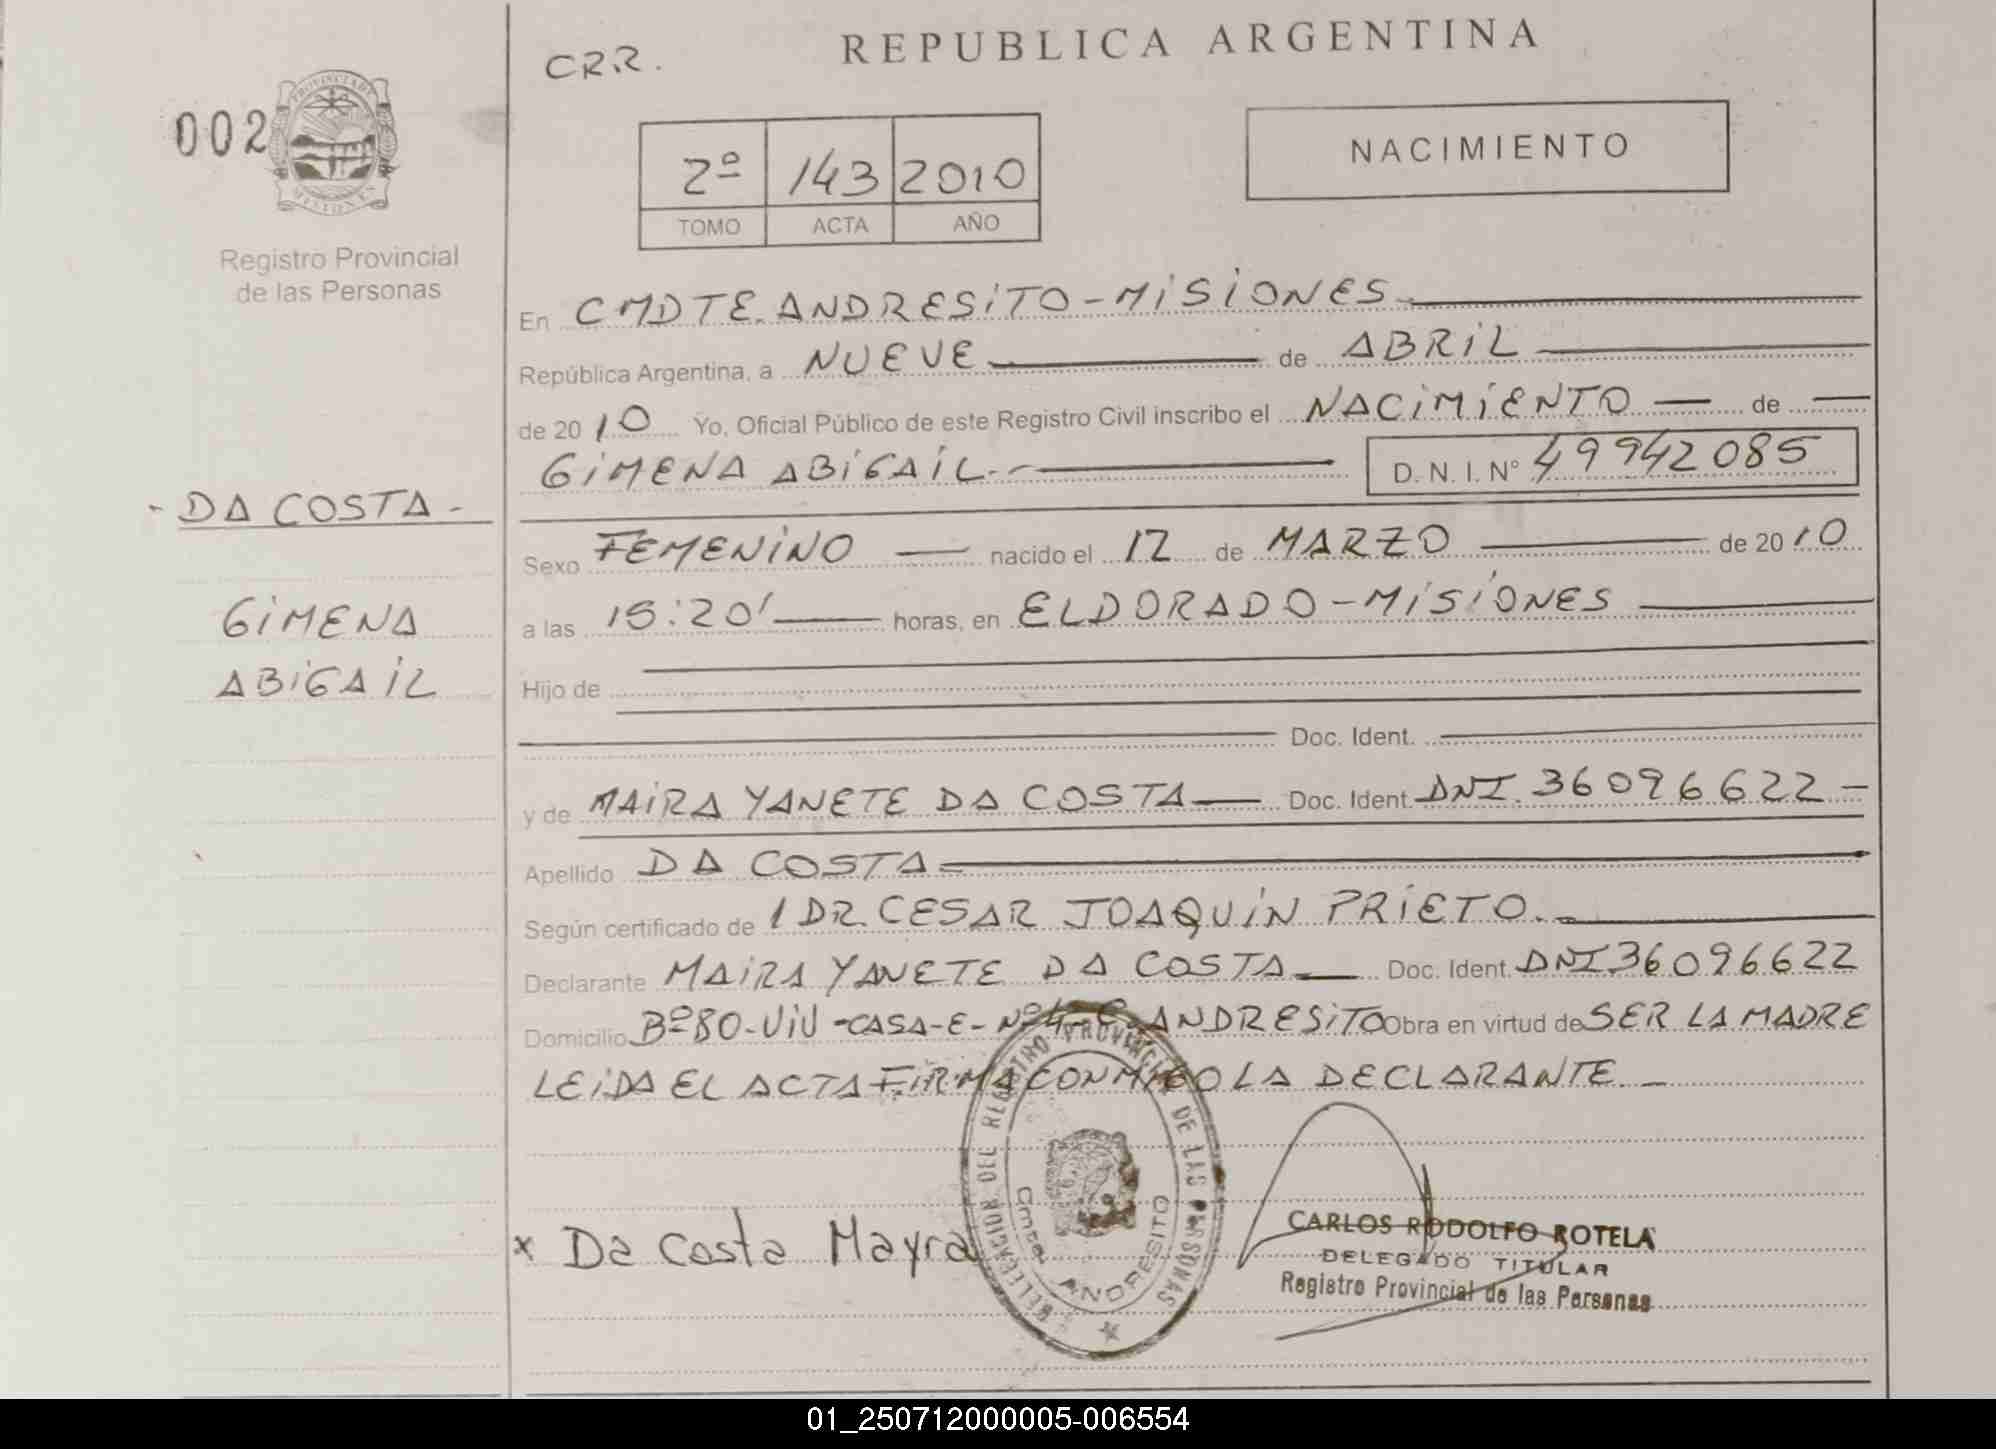 CRR.
REPUBLICA ARGENTINA
002
PROVINCIA DE MISIONES
2º 143 2010
TOMO ACTA AÑO
NACIMIENTO
Registro Provincial
de las Personas
En CMDTE. ANDRESITO - MISIONES
República Argentina, a NUEVE de ABRIL
de 2010 Yo, Oficial Público de este Registro Civil inscribo el NACIMIENTO de
GIMENA ABIGAIL.- D.N.I. Nº 49942085
- DA COSTA -
Sexo FEMENINO nacido el 12 de MARZO de 2010
GIMENA
a las 15:20' horas, en ELDORADO - MISIONES
ABIGAIL
Hijo de
Doc. Ident.
y de MAIRA YANETE DA COSTA Doc. Ident. DNI. 36096622 -
Apellido DA COSTA
Según certificado de 1 DR. CESAR JOAQUIN PRIETO.
Declarante MAIRA YANETE DA COSTA Doc. Ident. DNI 36096622
Domicilio Bº 80-VIV - CASA-E- Nº 4- ANDRESITO Obra en virtud de SER LA MADRE
LEIDA EL ACTA FIRMA CONMIGO LA DECLARANTE. -
x Da Costa Mayra
DELEGACION DEL REGISTRO PROVINCIAL DE LAS PERSONAS
Cmte. ANDRESITO
CARLOS RODOLFO ROTELA
DELEGADO TITULAR
Registro Provincial de las Personas
01_250712000005-006554